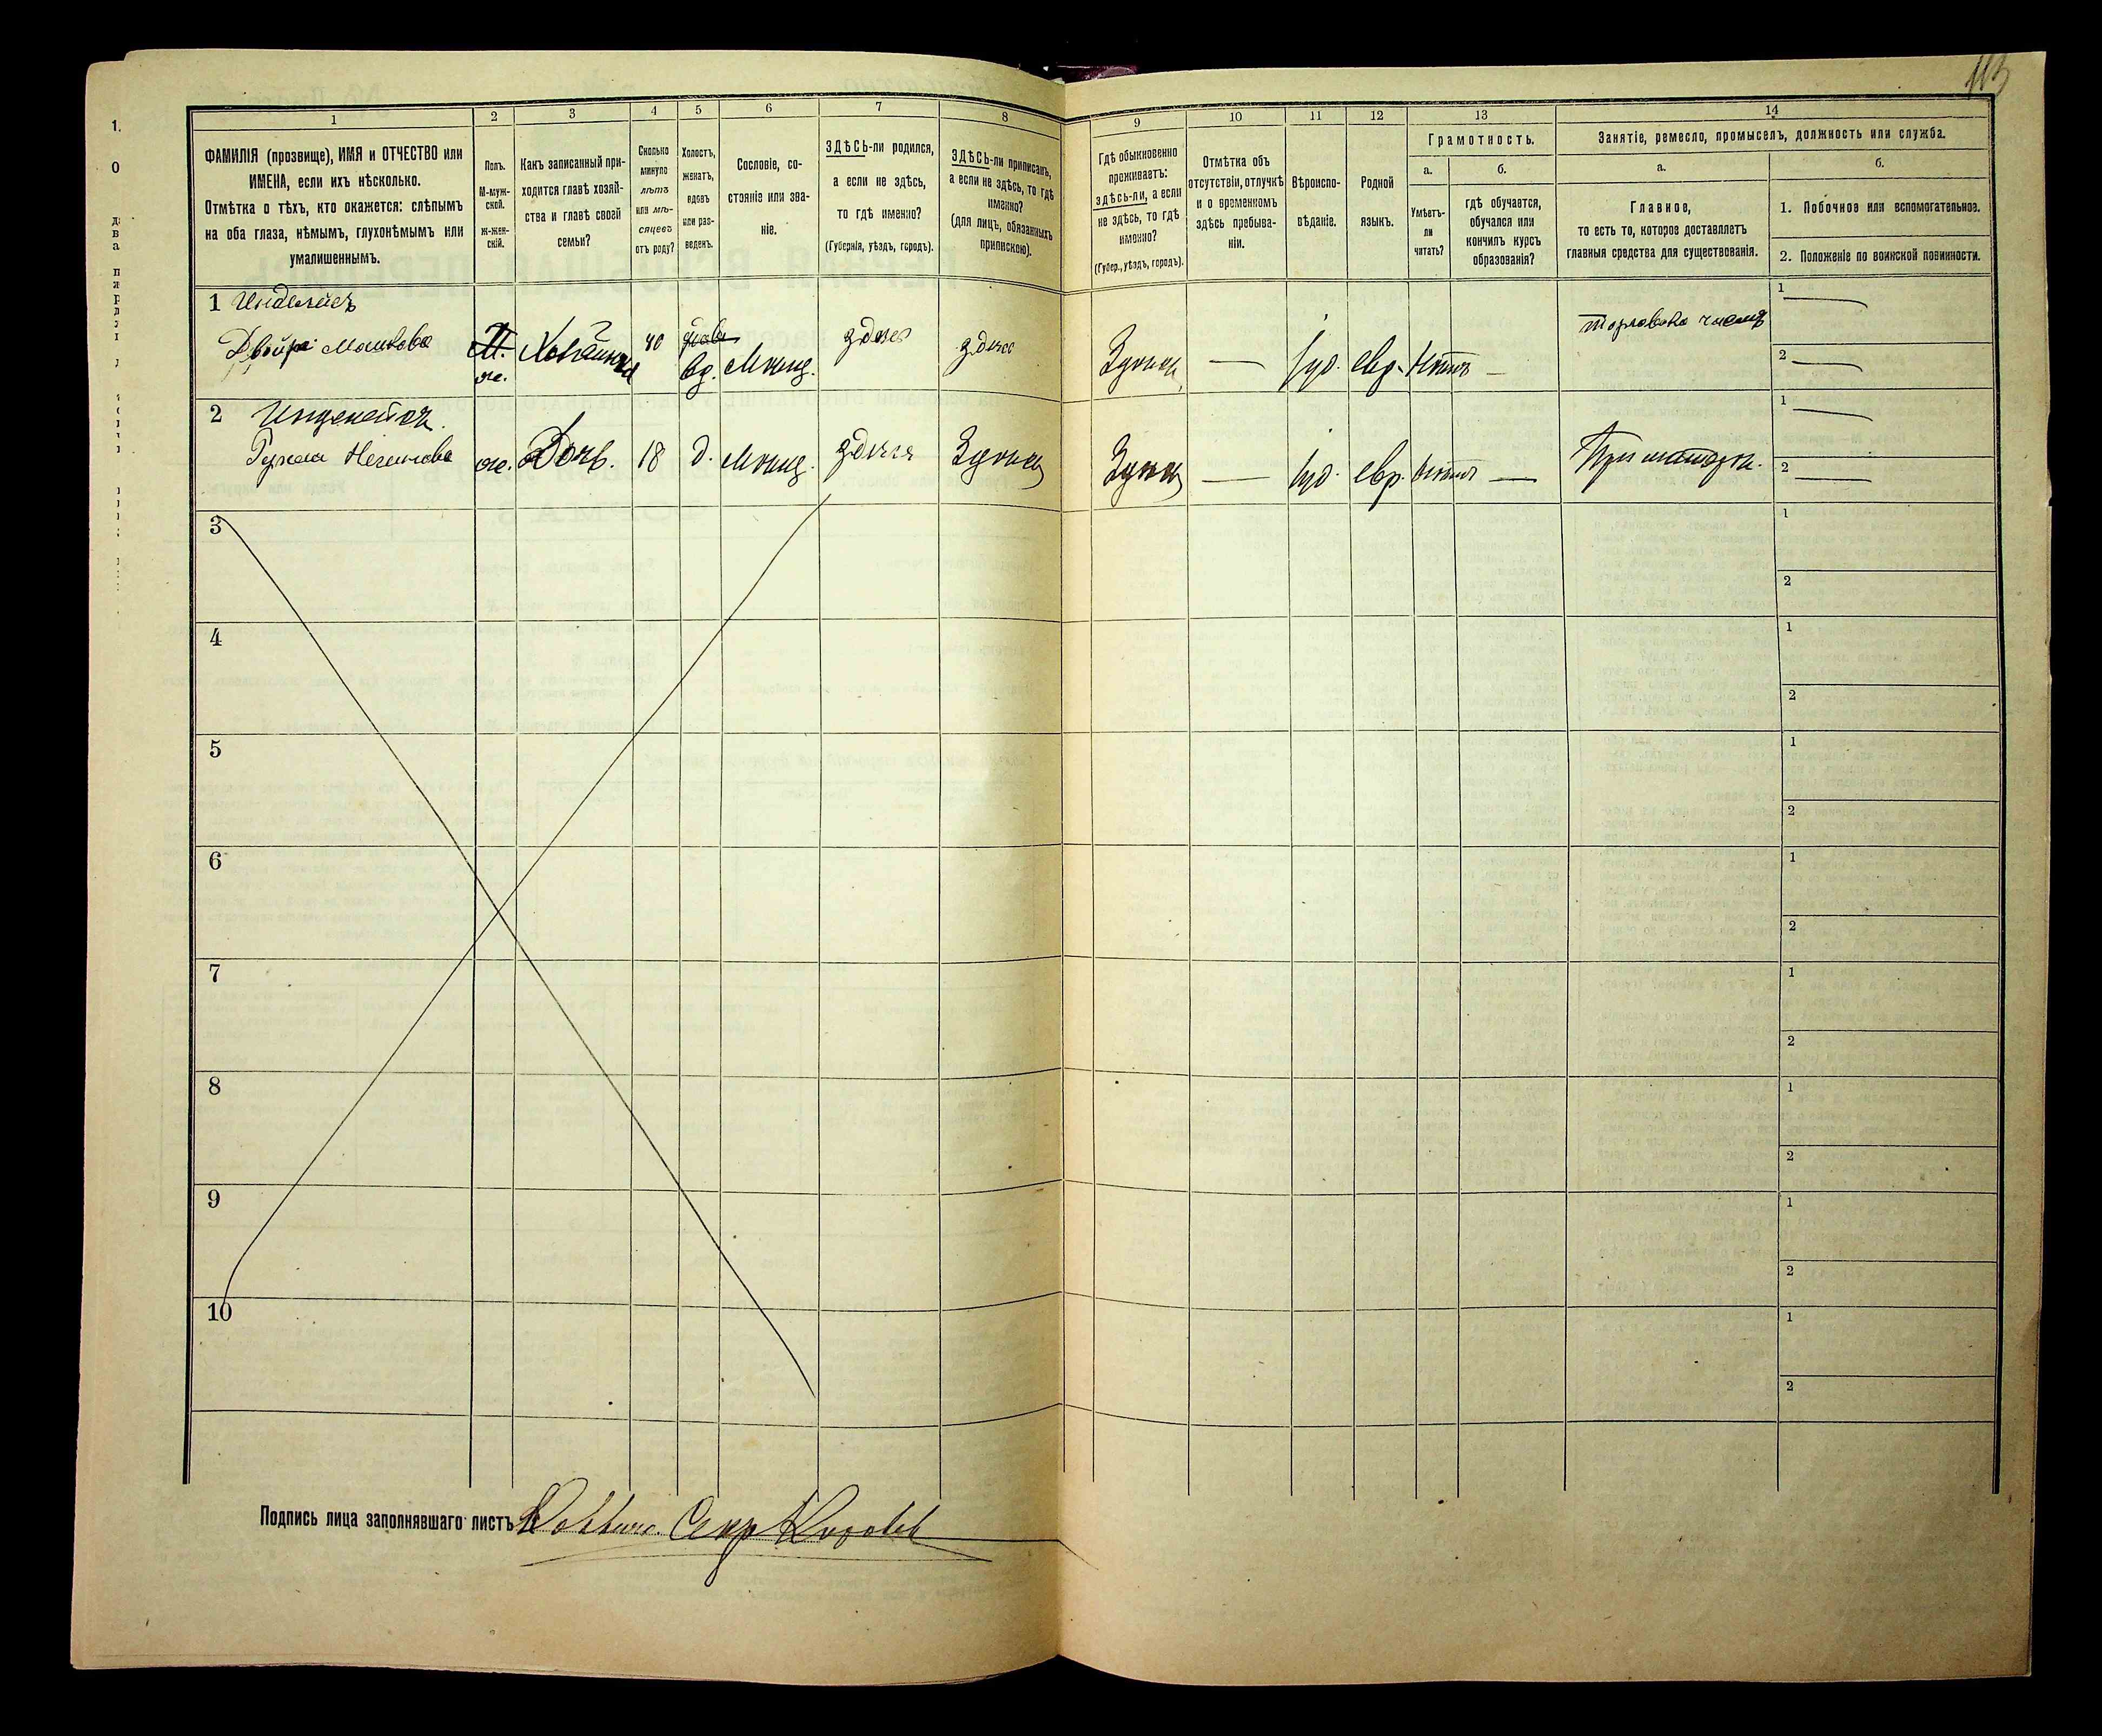 113
1
2
3
4
5
6
7
8
9
10
11
12
13
14
ФАМИЛІЯ (прозвище), ИМЯ и ОТЧЕСТВО или
ИМЕНА, если ихъ нѣсколько.
Отмѣтка о тѣхъ, кто окажется: слѣпымъ
на оба глаза, нѣмымъ, глухонѣмымъ или
умалишеннымъ.
Полъ.
М-муж-
ской.
Ж-жен-
скій.
Какъ записанный при-
ходится главѣ хозяй-
ства и главѣ своей
семьи?
Сколько
минуло
лѣтъ
или мѣ-
сяцевъ
отъ роду?
Холостъ,
женатъ,
вдовъ
или раз-
веденъ.
Сословіе, со-
стояніе или зва-
ніе.
ЗДѢСЬ-ли родился,
а если не здѣсь,
то гдѣ именно?
(Губернія, уѣздъ, городъ).
ЗДѢСЬ-ли приписанъ,
а если не здѣсь, то гдѣ
именно?
(для лицъ, обязанныхъ
припискою).
Гдѣ обыкновенно
проживаетъ:
здѣсь-ли, а если
не здѣсь, то гдѣ
именно?
(Губер., уѣздъ, городъ).
Отмѣтка объ
отсутствіи, отлучкѣ
и о временномъ
здѣсь пребыва-
ніи.
Вѣроиспо-
вѣданіе.
Родной
языкъ.
Грамотность.
а.
Умѣетъ-
ли
читать?
б.
гдѣ обучается,
обучался или
кончилъ курсъ
образованія?
Занятіе, ремесло, промыселъ, должность или служба.
а.
Главное,
то есть то, которое доставляетъ
главныя средства для существованія.
б.
1. Побочное или вспомогательное.
2. Положеніе по воинской повинности.
1
Двойра
М.
же.
Хозяйка
40
вд.
Мѣщ.
здѣсь
здѣсь
іуд. евр. нѣтъ —
1 —
2 —
2
же. Дочь. 18 д. Мѣщ. здѣся
іуд. евр. нѣтъ —
1 —
2 —
3
1
2
4
1
2
5
1
2
6
1
2
7
1
2
8
1
2
9
1
2
10
1
2
Подпись лица заполнявшаго листъ